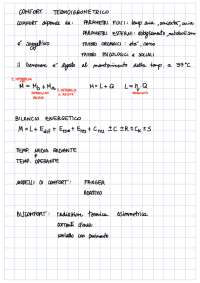 COMFORT TERMOIGROMETRICO
COMFORT dipende da: PARAMETRI FISICI: temp. aria, umidità, aria
PARAMETRI ESTERNI: abbigliamento, metabolismo
è soggettivo FATTORI ORGANICI: età, sesso
FATTORI PSICOLOGICI e SOCIALI
il benessere è legato al mantenimento della temp. a 37°C
M = Mb + Ma H = L + Q L = η Q
BILANCIO ENERGETICO
TEMP. MEDIA RADIANTE
TEMP. OPERANTE
MODELLI DI COMFORT: FANGER
ADATTIVO
DISCOMFORT: radiazione termica asimmetrica
correnti d'aria
contatto con pavimento